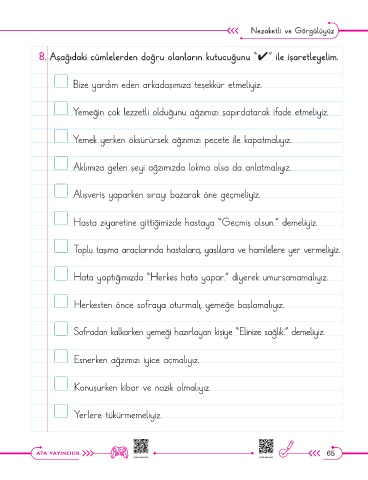 Nezaketli ve Görgülüyüz
8. Aşağıdaki cümlelerden doğru olanların kutucuğunu "✔" ile işaretleyelim.
Bize yardım eden arkadaşımıza teşekkür etmeliyiz.
Yemeğin çok lezzetli olduğunu ağzımızı şapırdatarak ifade etmeliyiz.
Yemek yerken öksürürsek ağzımızı peçete ile kapatmalıyız.
Aklımıza gelen şeyi ağzımızda lokma olsa da anlatmalıyız.
Alışveriş yaparken sırayı bozarak öne geçmeliyiz.
Hasta ziyaretine gittiğimizde hastaya "Geçmiş olsun." demeliyiz.
Toplu taşıma araçlarında hastalara, yaşlılara ve hamilelere yer vermeliyiz.
Hata yaptığımızda "Herkes hata yapar." diyerek umursamamalıyız.
Herkesten önce sofraya oturmalı, yemeğe başlamalıyız.
Sofradan kalkarken yemeği hazırlayan kişiye "Elinize sağlık." demeliyiz.
Esnerken ağzımızı iyice açmalıyız.
Konuşurken kibar ve nazik olmalıyız.
Yerlere tükürmemeliyiz.
ATA YAYINCILIK
65